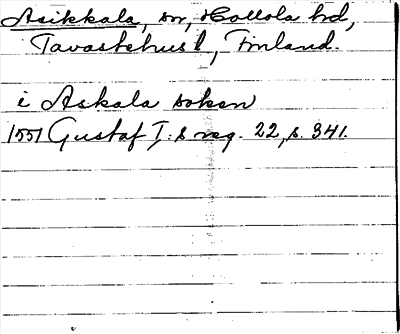 Asikkala, sn, Hollola hd,
Tavastehus l, Finland.
i Askala soken
1551 Gustaf I:s reg. 22, s. 341.